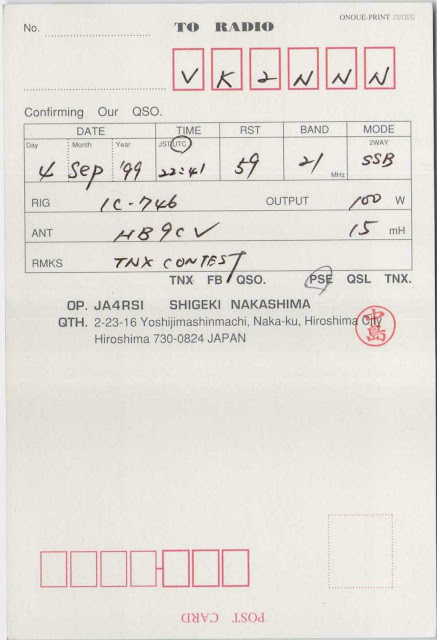 ONOUE-PRINT
No.
TO RADIO
VK2NNN
Confirming Our QSO.
DATE TIME RST BAND MODE
Day Month Year JST UTC 2WAY
4 Sep '99 22:41 59 21 MHz SSB
RIG IC-746 OUTPUT 100 W
ANT HB9CV 15 mH
RMKS TNX CONTEST
TNX FB QSO. PSE QSL TNX.
OP. JA4RSI SHIGEKI NAKASHIMA
QTH. 2-23-16 Yoshijimashinmachi, Naka-ku, Hiroshima City
Hiroshima 730-0824 JAPAN
中島
POST CARD